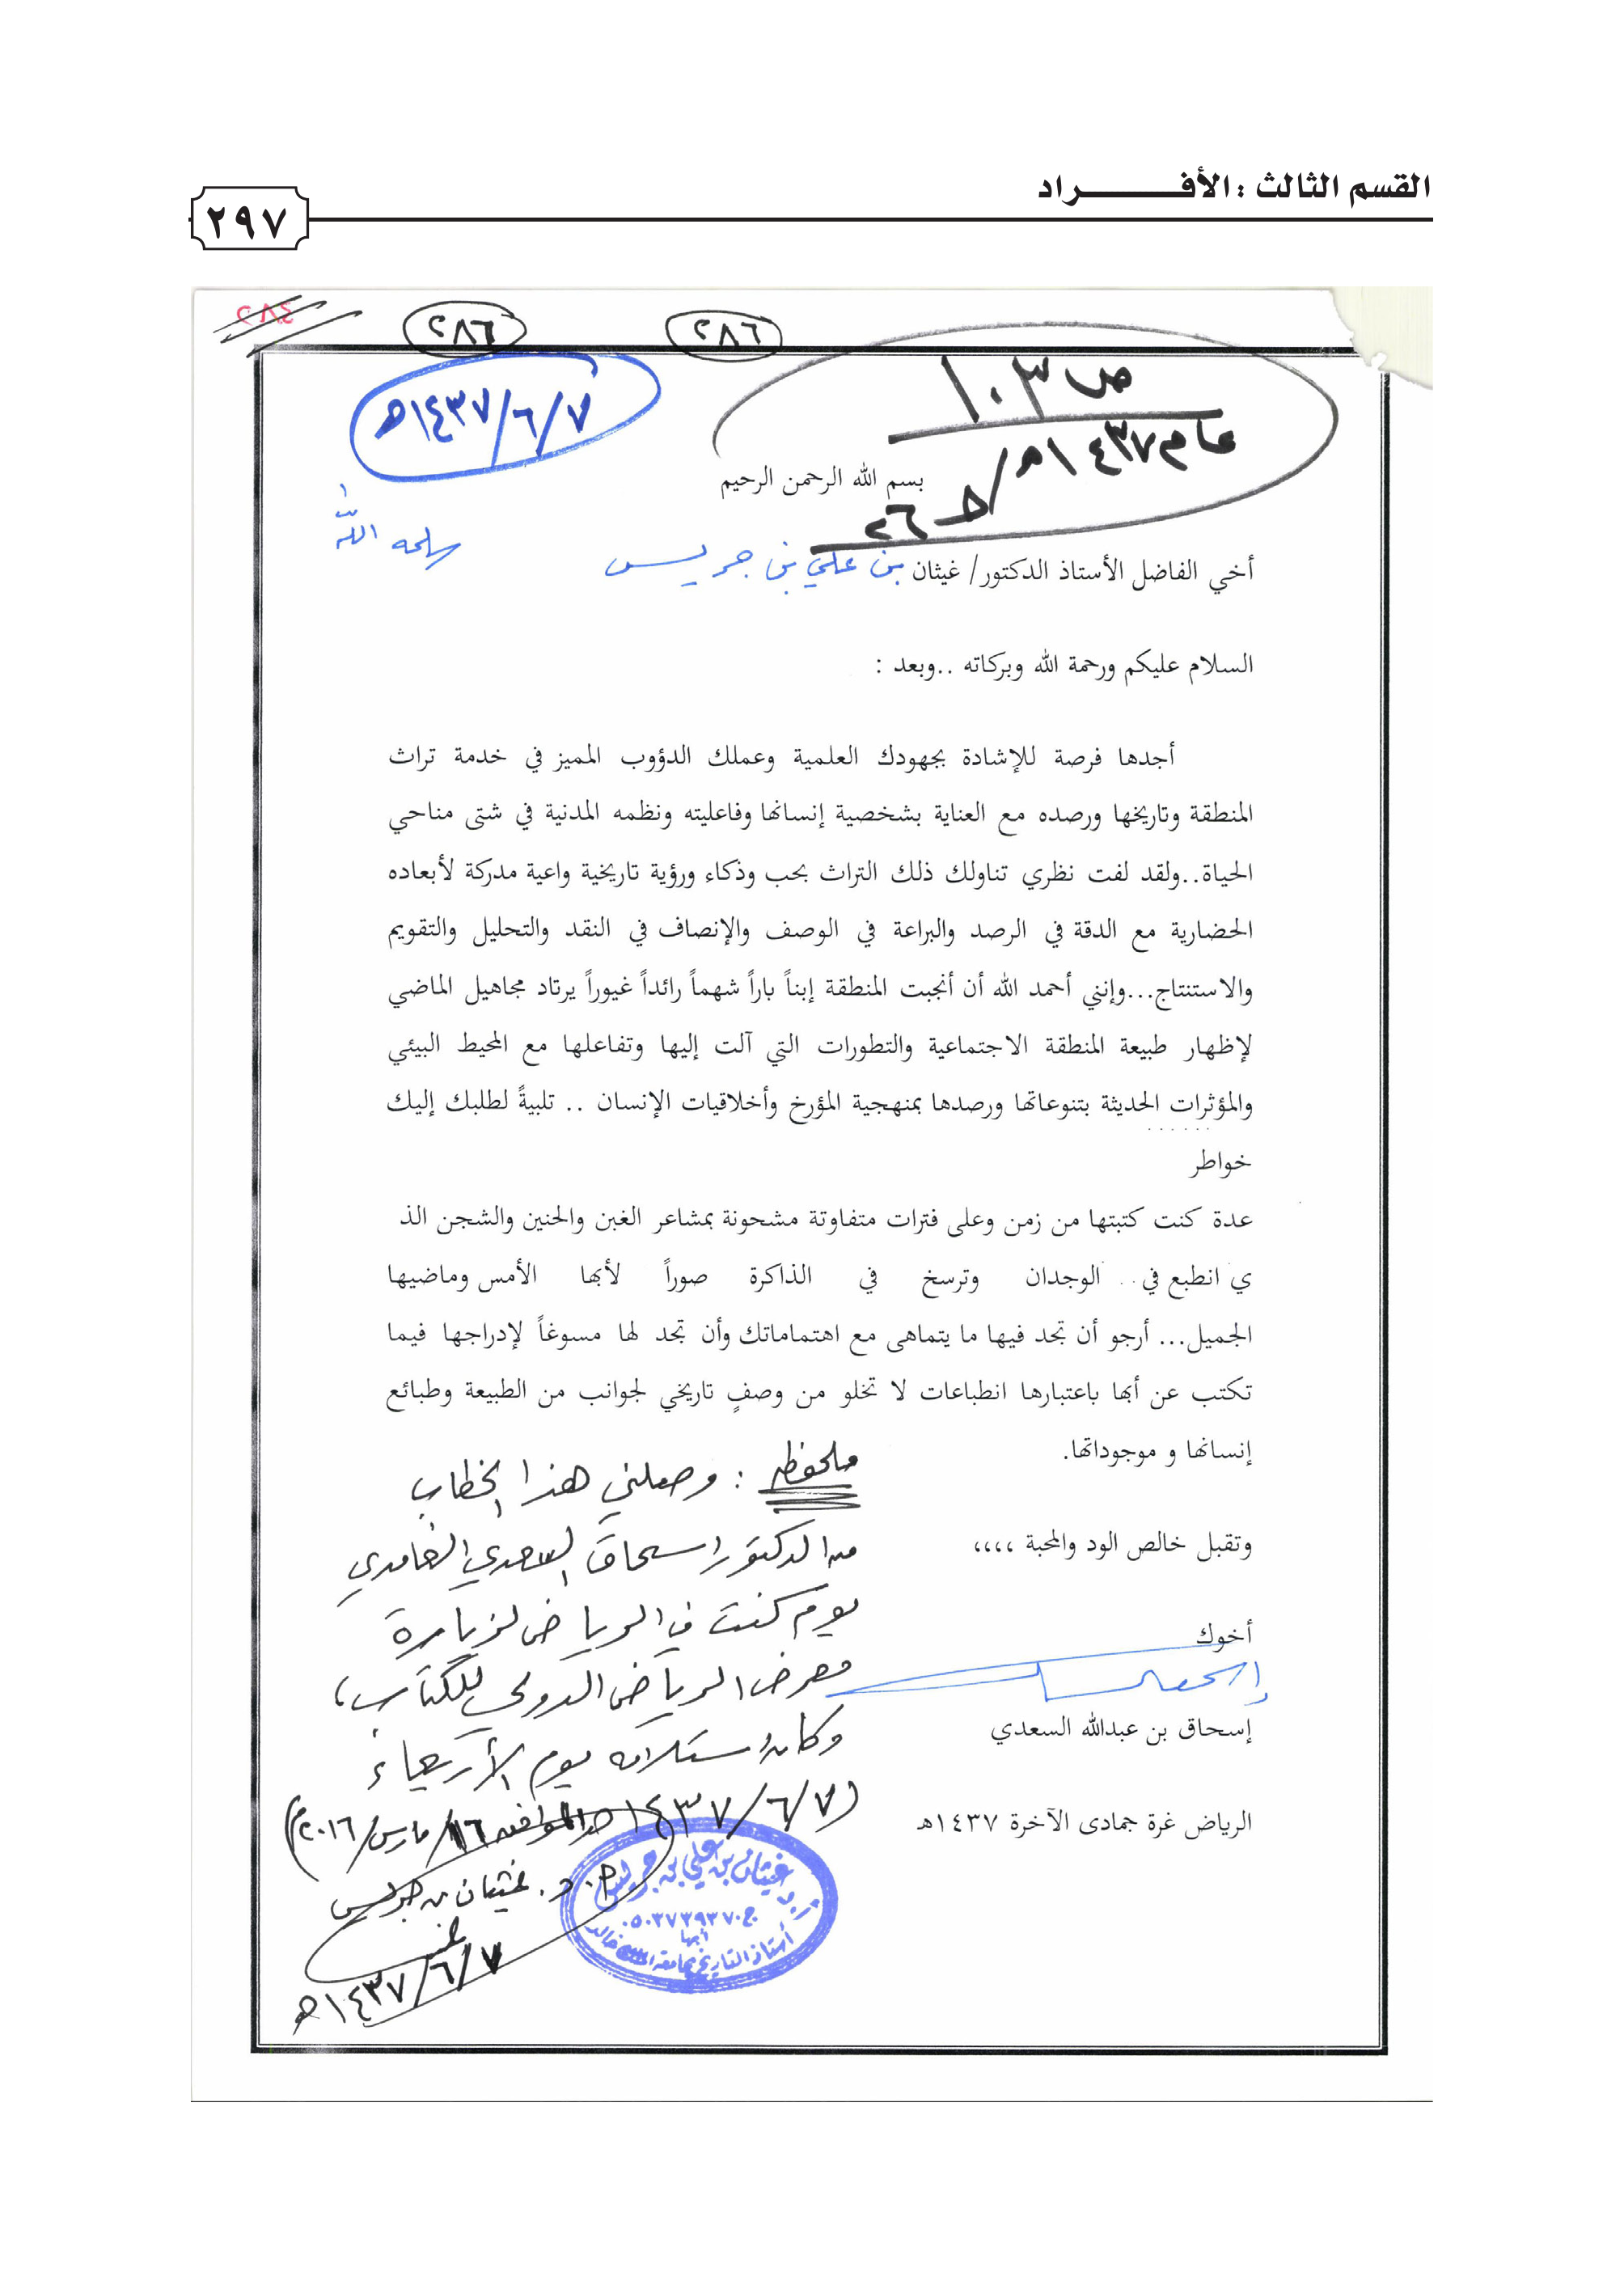 القسم الثالث : الأفـــــــراد
٢٩٧
٢٨٤
٢٨٦
٢٨٦
ص ١٠٣
عام ١٤٣٧هـ / حـ ٢٦
١٤٣٧/٦/٧هـ
بسم الله الرحمن الرحيم
أخي الفاضل الأستاذ الدكتور/ غيثان بن علي بن جريس سلمه الله
السلام عليكم ورحمة الله وبركاته ..وبعد :
أجدها فرصة للإشادة بجهودك العلمية وعملك الدؤوب المميز في خدمة تراث
المنطقة وتاريخها ورصده مع العناية بشخصية إنسانها وفاعليته ونظمه المدنية في شتى مناحي
الحياة..ولقد لفت نظري تناولك ذلك التراث بحب وذكاء ورؤية تاريخية واعية مدركة لأبعاده
الحضارية مع الدقة في الرصد والبراعة في الوصف والإنصاف في النقد والتحليل والتقويم
والاستنتاج...وإنني أحمد الله أن أنجبت المنطقة إبناً باراً شهماً رائداً غيوراً يرتاد مجاهيل الماضي
لإظهار طبيعة المنطقة الاجتماعية والتطورات التي آلت إليها وتفاعلها مع المحيط البيئي
والمؤثرات الحديثة بتنوعاتها ورصدها بمنهجية المؤرخ وأخلاقيات الإنسان .. تلبيةً لطلبك إليك
خواطر
عدة كنت كتبتها من زمن وعلى فترات متفاوتة مشحونة بمشاعر الغبن والحنين والشجن الذ
ي انطبع في الوجدان وترسخ في الذاكرة صوراً لأبها الأمس وماضيها
الجميل... أرجو أن تجد فيها ما يتماهى مع اهتماماتك وأن تجد لها مسوغاً لإدراجها فيما
تكتب عن أبها باعتبارها انطباعات لا تخلو من وصفٍ تاريخي لجوانب من الطبيعة وطبائع
إنسانها و موجوداتها.
وتقبل خالص الود والمحبة ،،،،
أخوك
إسحاق بن عبدالله السعدي
الرياض غرة جمادى الآخرة ١٤٣٧هـ
ملحوظة : وصلني هذا الخطاب
من الدكتور إسحاق السعدي الغامدي
يوم كنت في الرياض لزيارة
معرض الرياض الدولي للكتاب،
وكان استلامه يوم الأربعاء
(١٤٣٧/٦/٧هـ الموافق ١٦/مارس/٢٠١٦م)
أ.د. غيثان بن جريس
١٤٣٧/٦/٧هـ
أ.د غيثان بن علي بن جريس
أبها
أستاذ التاريخ بجامعة الملك خالد